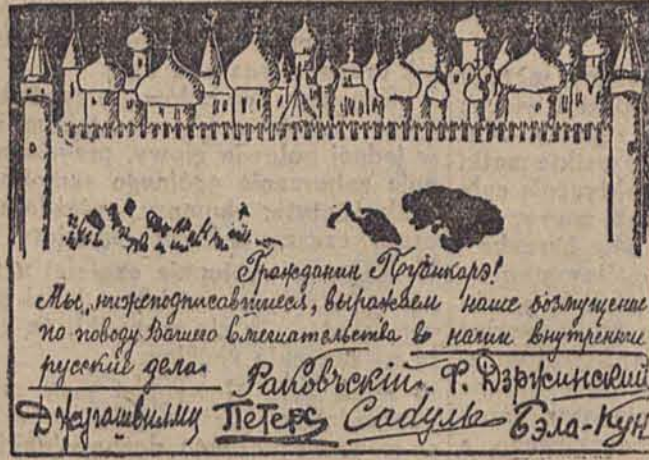 Гражданин Пуанкарэ!
Мы, нижеподписавшиеся, выражаем наше возмущение
по поводу Вашего вмешательства в наши внутренние
русские дела.
Раковъскій. Ф. Дзржинский
Джугашвилми Петерс Садуль Бэла-Кун